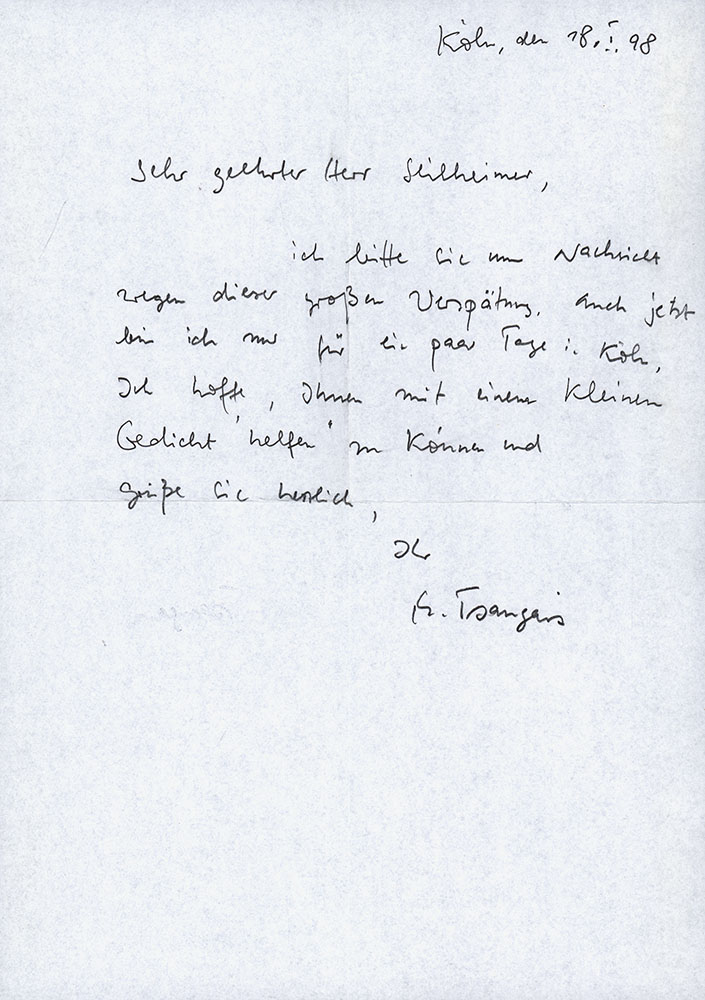 Köln, den 18. I. 98
Sehr geehrter Herr Seilheimer,
ich bitte Sie um Nachsicht
wegen dieser großen Verspätung. Auch jetzt
bin ich nur für ein paar Tage in Köln,
Ich hoffe, Ihnen mit einem kleinen
Gedicht "helfen" zu können und
grüße Sie herzlich,
Ihr
K. Tsangaris